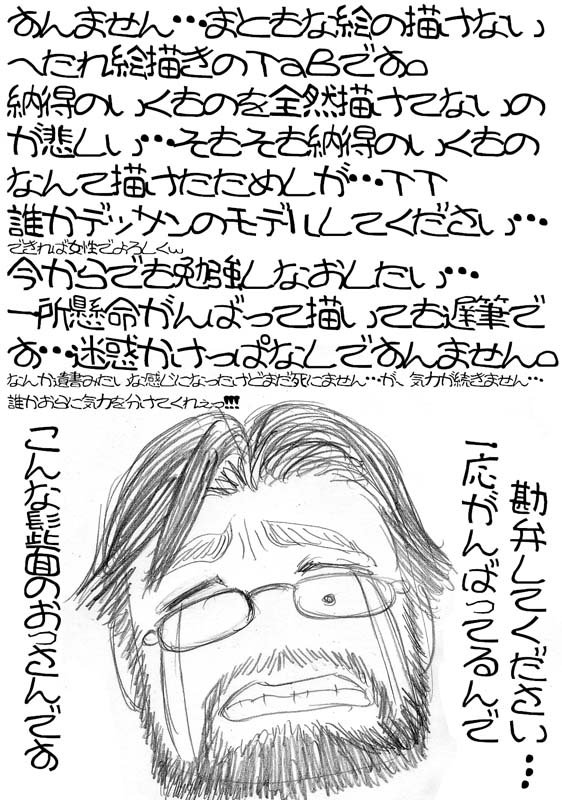 すんません…まともな絵の描けない
へたれ絵描きのTaBです。
納得のいくものを全然描けてないの
が悲しい…そもそも納得のいくもの
なんて描けたためしが…TT
誰かデッサンのモデルしてください…
できれば女性でよろしくw
今からでも勉強しなおしたい…
一所懸命がんばって描いても遅筆で
す…迷惑かけっぱなしですんません。
なんか遺書みたいな感じになったけどまだ死にません…が、気力が続きません…
誰かおらに気力を分けてくれぇっ!!!
勘弁してください…
一応がんばってるんで
こんな髭面のおっさんです